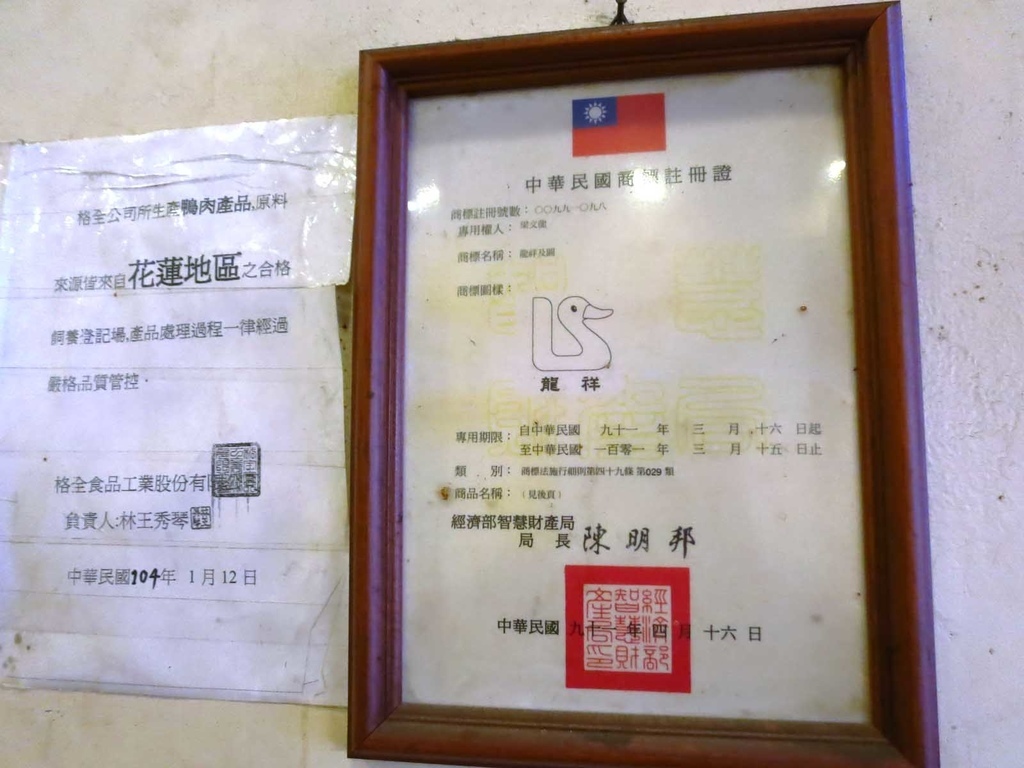 格全公司所生產鴨肉產品,原料
來源皆來自花蓮地區之合格
飼養登記場,產品處理過程一律經過
嚴格品質管控.
格全食品工業股份有限
負責人:林王秀琴
中華民國104年 1月12日
中華民國商標註冊證
商標註冊號數：〇〇九九一〇九八
專用權人：梁文龍
商標名稱：龍祥及圖
商標圖樣：
龍祥
專用期限：自中華民國 九十一 年 三 月 十六 日起
至中華民國 一百零一 年 三 月 十五 日止
類 別：商標法施行細則第四十九條 第029 類
商品名稱：（見後頁）
經濟部智慧財產局
局 長 陳明邦
經濟部智慧財產局印
中華民國 九十一 年 四 月 十六 日